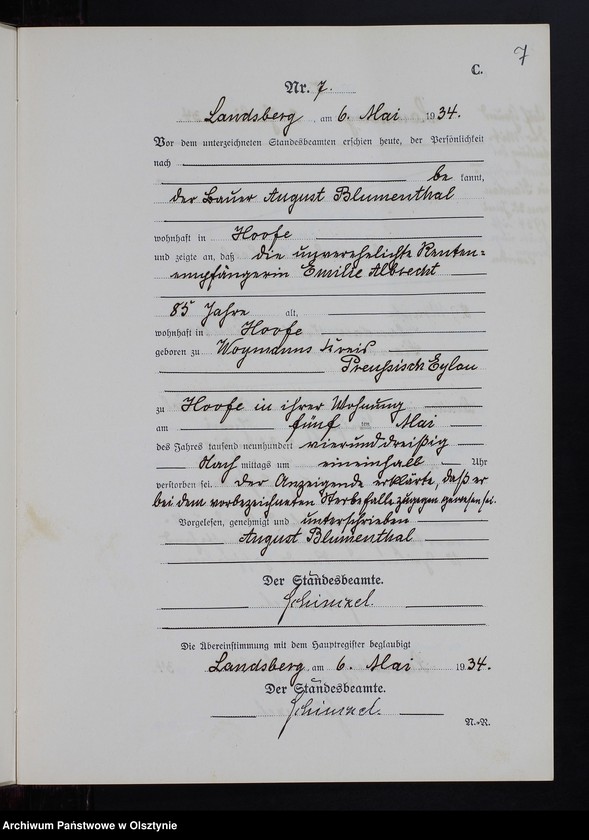 7
C.
Nr. 7.
Landsberg, am 6. Mai 1934.
Vor dem unterzeichneten Standesbeamten erschien heute, der Persönlichkeit
nach
be kannt,
der Bauer August Blumenthal
wohnhaft in Hoofe
und zeigte an, daß die unverehelichte Renten=
empfängerin Emilie Albrecht
85 Jahre alt,
wohnhaft in Hoofe
geboren zu Woymanns Kreis
Preußisch Eylau
zu Hoofe in ihrer Wohnung
am fünf im Mai
des Jahres tausend neunhundert vierunddreißig
Nach mittags um eineinhalb Uhr
verstorben sei. Der Anzeigende erklärte, daß er
bei dem vorbezeichneten Sterbefalle zugegen gewesen sei.
Vorgelesen, genehmigt und unterschrieben
August Blumenthal
Der Standesbeamte.
Schinzel.
Die Übereinstimmung mit dem Hauptregister beglaubigt
Landsberg, am 6. Mai 1934.
Der Standesbeamte.
Schinzel.
N.=R.
Archiwum Państwowe w Olsztynie